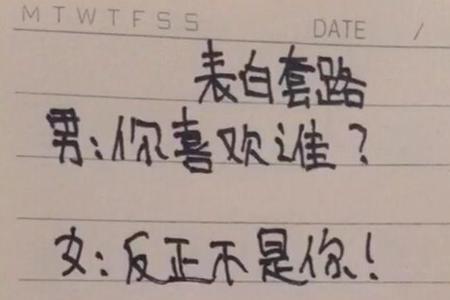 M T W T F S S DATE /
表白套路
男:你喜欢谁?
女:反正不是你!